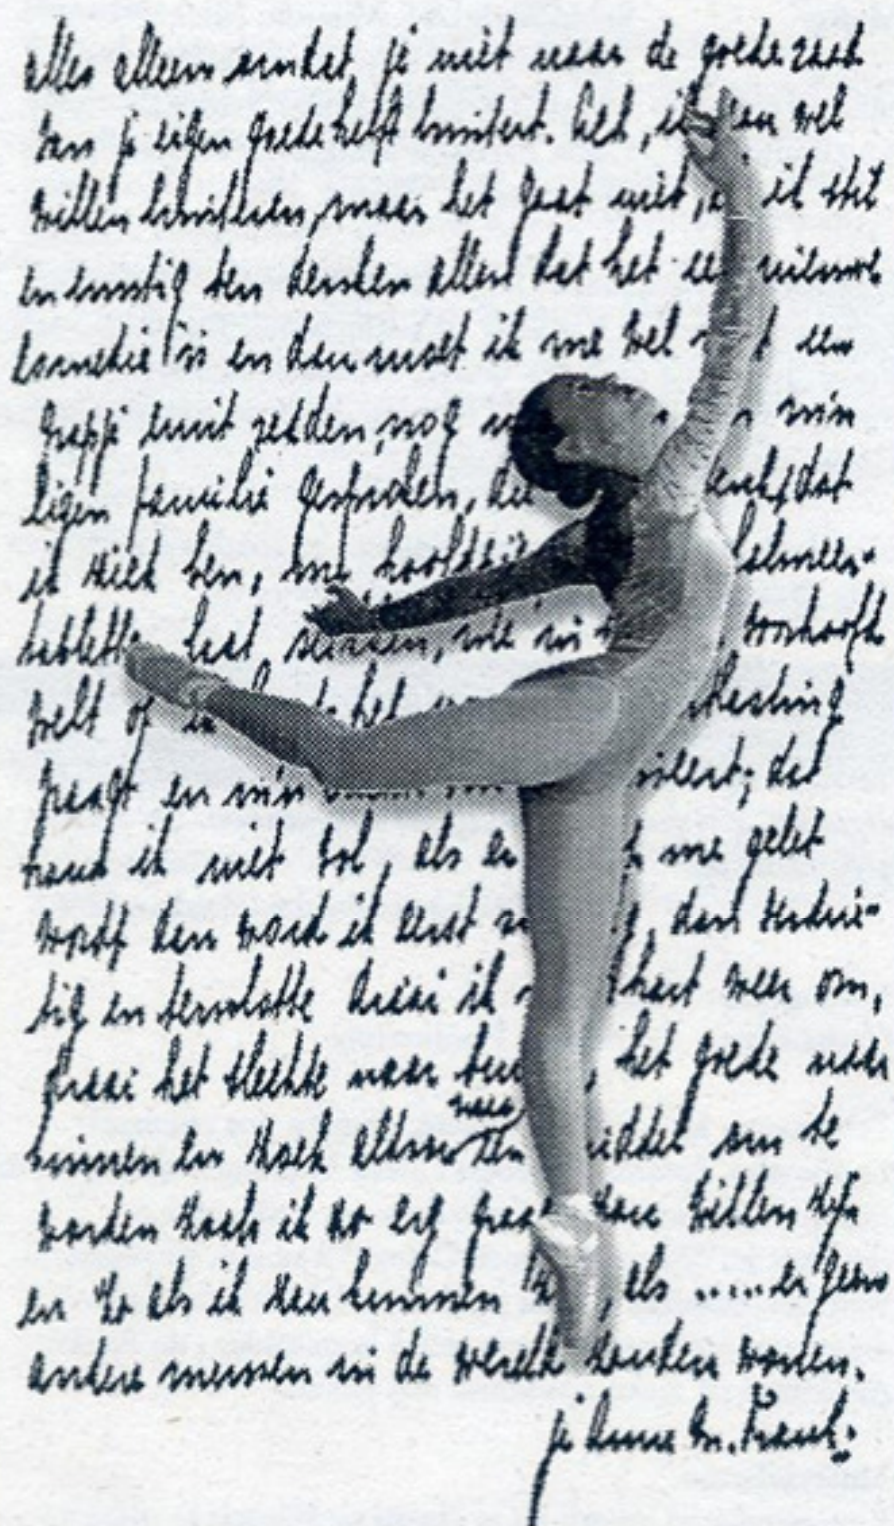 alles alleen omdat je niet naar de goede raad
van je eigen goede helft luistert. Ach, ik zou wel
willen luisteren, maar het gaat niet, ik stil
en ernstig ben denken allen dat het een nieuwe
comedie is en dan moet ik me wel een
grapje eruit redden, nog m'n
eigen familie gesproken, dat
ik ziek ben, me kalmeer-
tabletten laat slikken, me in voorhoofd
voelt of het ontlasting
vraagt en m'n dat
houd ik niet vol, als er me gelet
wordt dan word ik eerst dan verdrie-
tig en tenslotte draai ik hart weer om,
draai het slechte naar het goede naar
binnen en zoek aldoor naar een middel om te
worden zoals ik zo erg graag zou willen zijn
en zo als ik zou kunnen zijn, als ..... er geen
andere mensen in de wereld zouden wonen.
je Anne M. Frank.